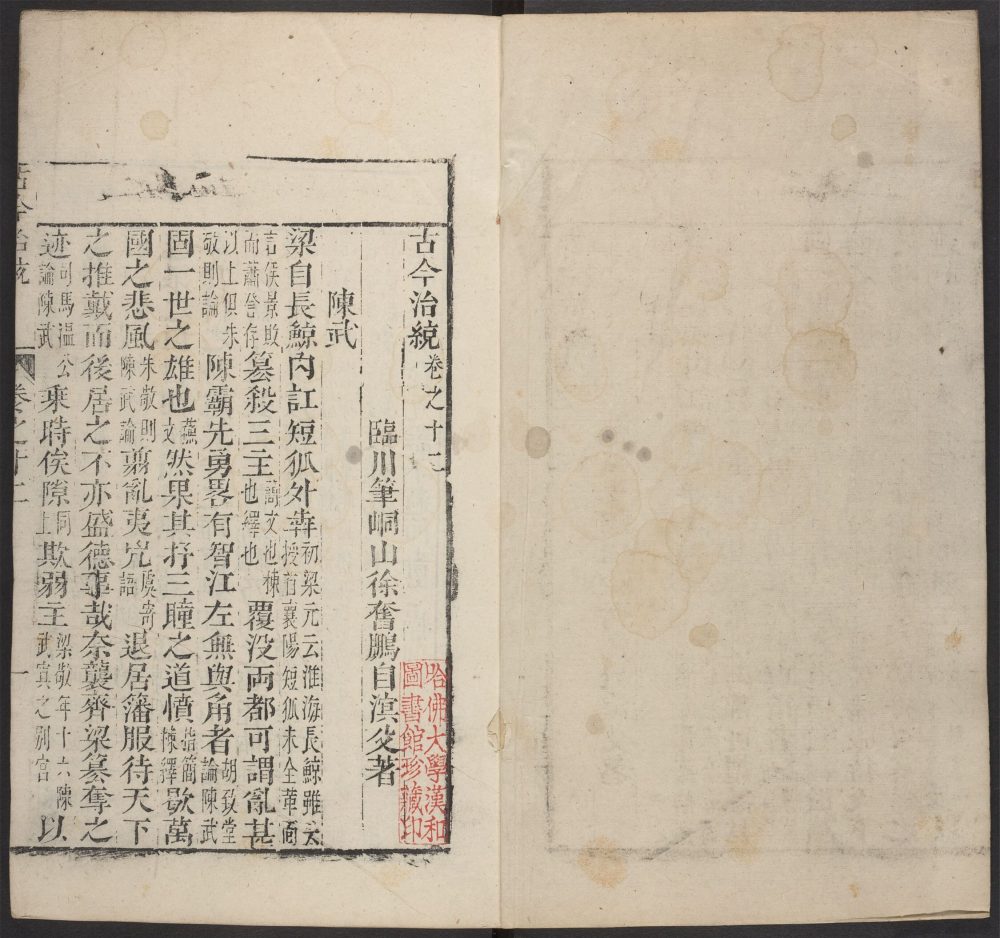 古今治統卷之十二
臨川筆峒山徐奮鵬自溟父著
陳武
梁自長鯨內訌短狐外犇初梁元云淮海長鯨雖云授首襄陽短狐未全革面
言侯景敗而蕭詧存篡殺三主也謂文也棟也繹也覆没両都可謂亂甚
以上俱朱敬則論陳霸先勇畧有智江左無與角者胡致堂論陳武
固一世之雄也蘇文然果其抒三瞳之道憤指簡棟繹歇萬
國之悲風朱敬則陳武論剪亂夷兇虞寄語退居籓服待天下
之推戴而後居之不亦盛德事哉奈襲齊梁篡奪之
迹司馬溫公論陳武乘時俟隙同上欺弱主梁敬年十六陳武寘之別宮以
古今治統
卷之十二
一
哈佛大學漢和
圖書館珍藏印